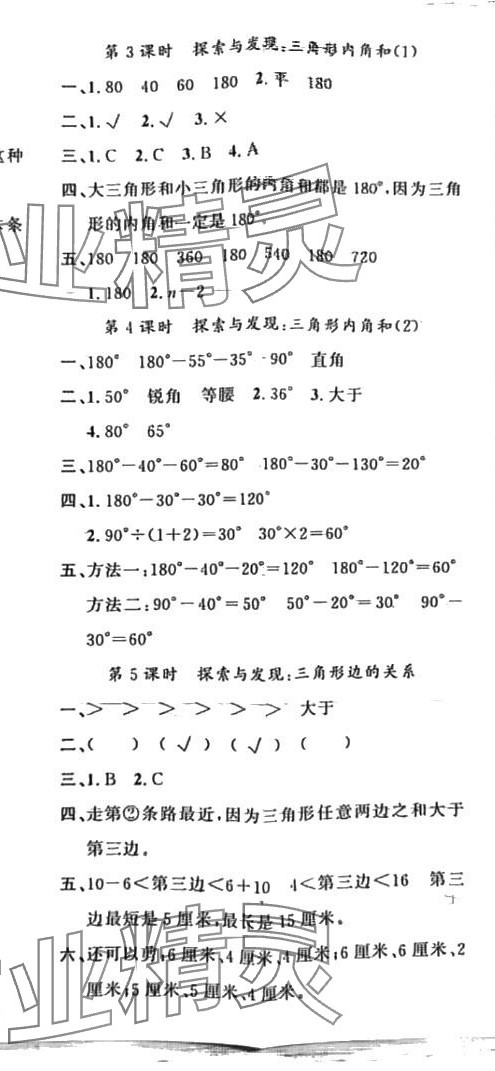 第3课时 探索与发现:三角形内角和(1)
一、1.80 40 60 180 2.平 180
二、1.√ 2.√ 3.×
三、1.C 2.C 3.B 4.A
四、大三角形和小三角形的内角和都是180°,因为三角
形的内角和一定是180°。
五、180 180 360 180 540 180 720
1.180 2.n-2
第4课时 探索与发现:三角形内角和(2)
一、180° 180°-55°-35° 90° 直角
二、1.50° 锐角 等腰 2.36° 3.大于
4.80° 65°
三、180°-40°-60°=80° 180°-30°-130°=20°
四、1.180°-30°-30°=120°
2.90°÷(1+2)=30° 30°×2=60°
五、方法一:180°-40°-20°=120° 180°-120°=60°
方法二:90°-40°=50° 50°-20°=30° 90°-
30°=60°
第5课时 探索与发现:三角形边的关系
一、> > > > > > 大于
二、( ) (√) (√) ( )
三、1.B 2.C
四、走第②条路最近,因为三角形任意两边之和大于
第三边。
五、10-6<第三边<6+10 4<第三边<16 第三
边最短是5厘米,最长是15厘米。
六、还可以剪:6厘米、4厘米、4厘米;6厘米、6厘米、2
厘米;5厘米、5厘米、4厘米。
这种
条
业精灵
业精灵